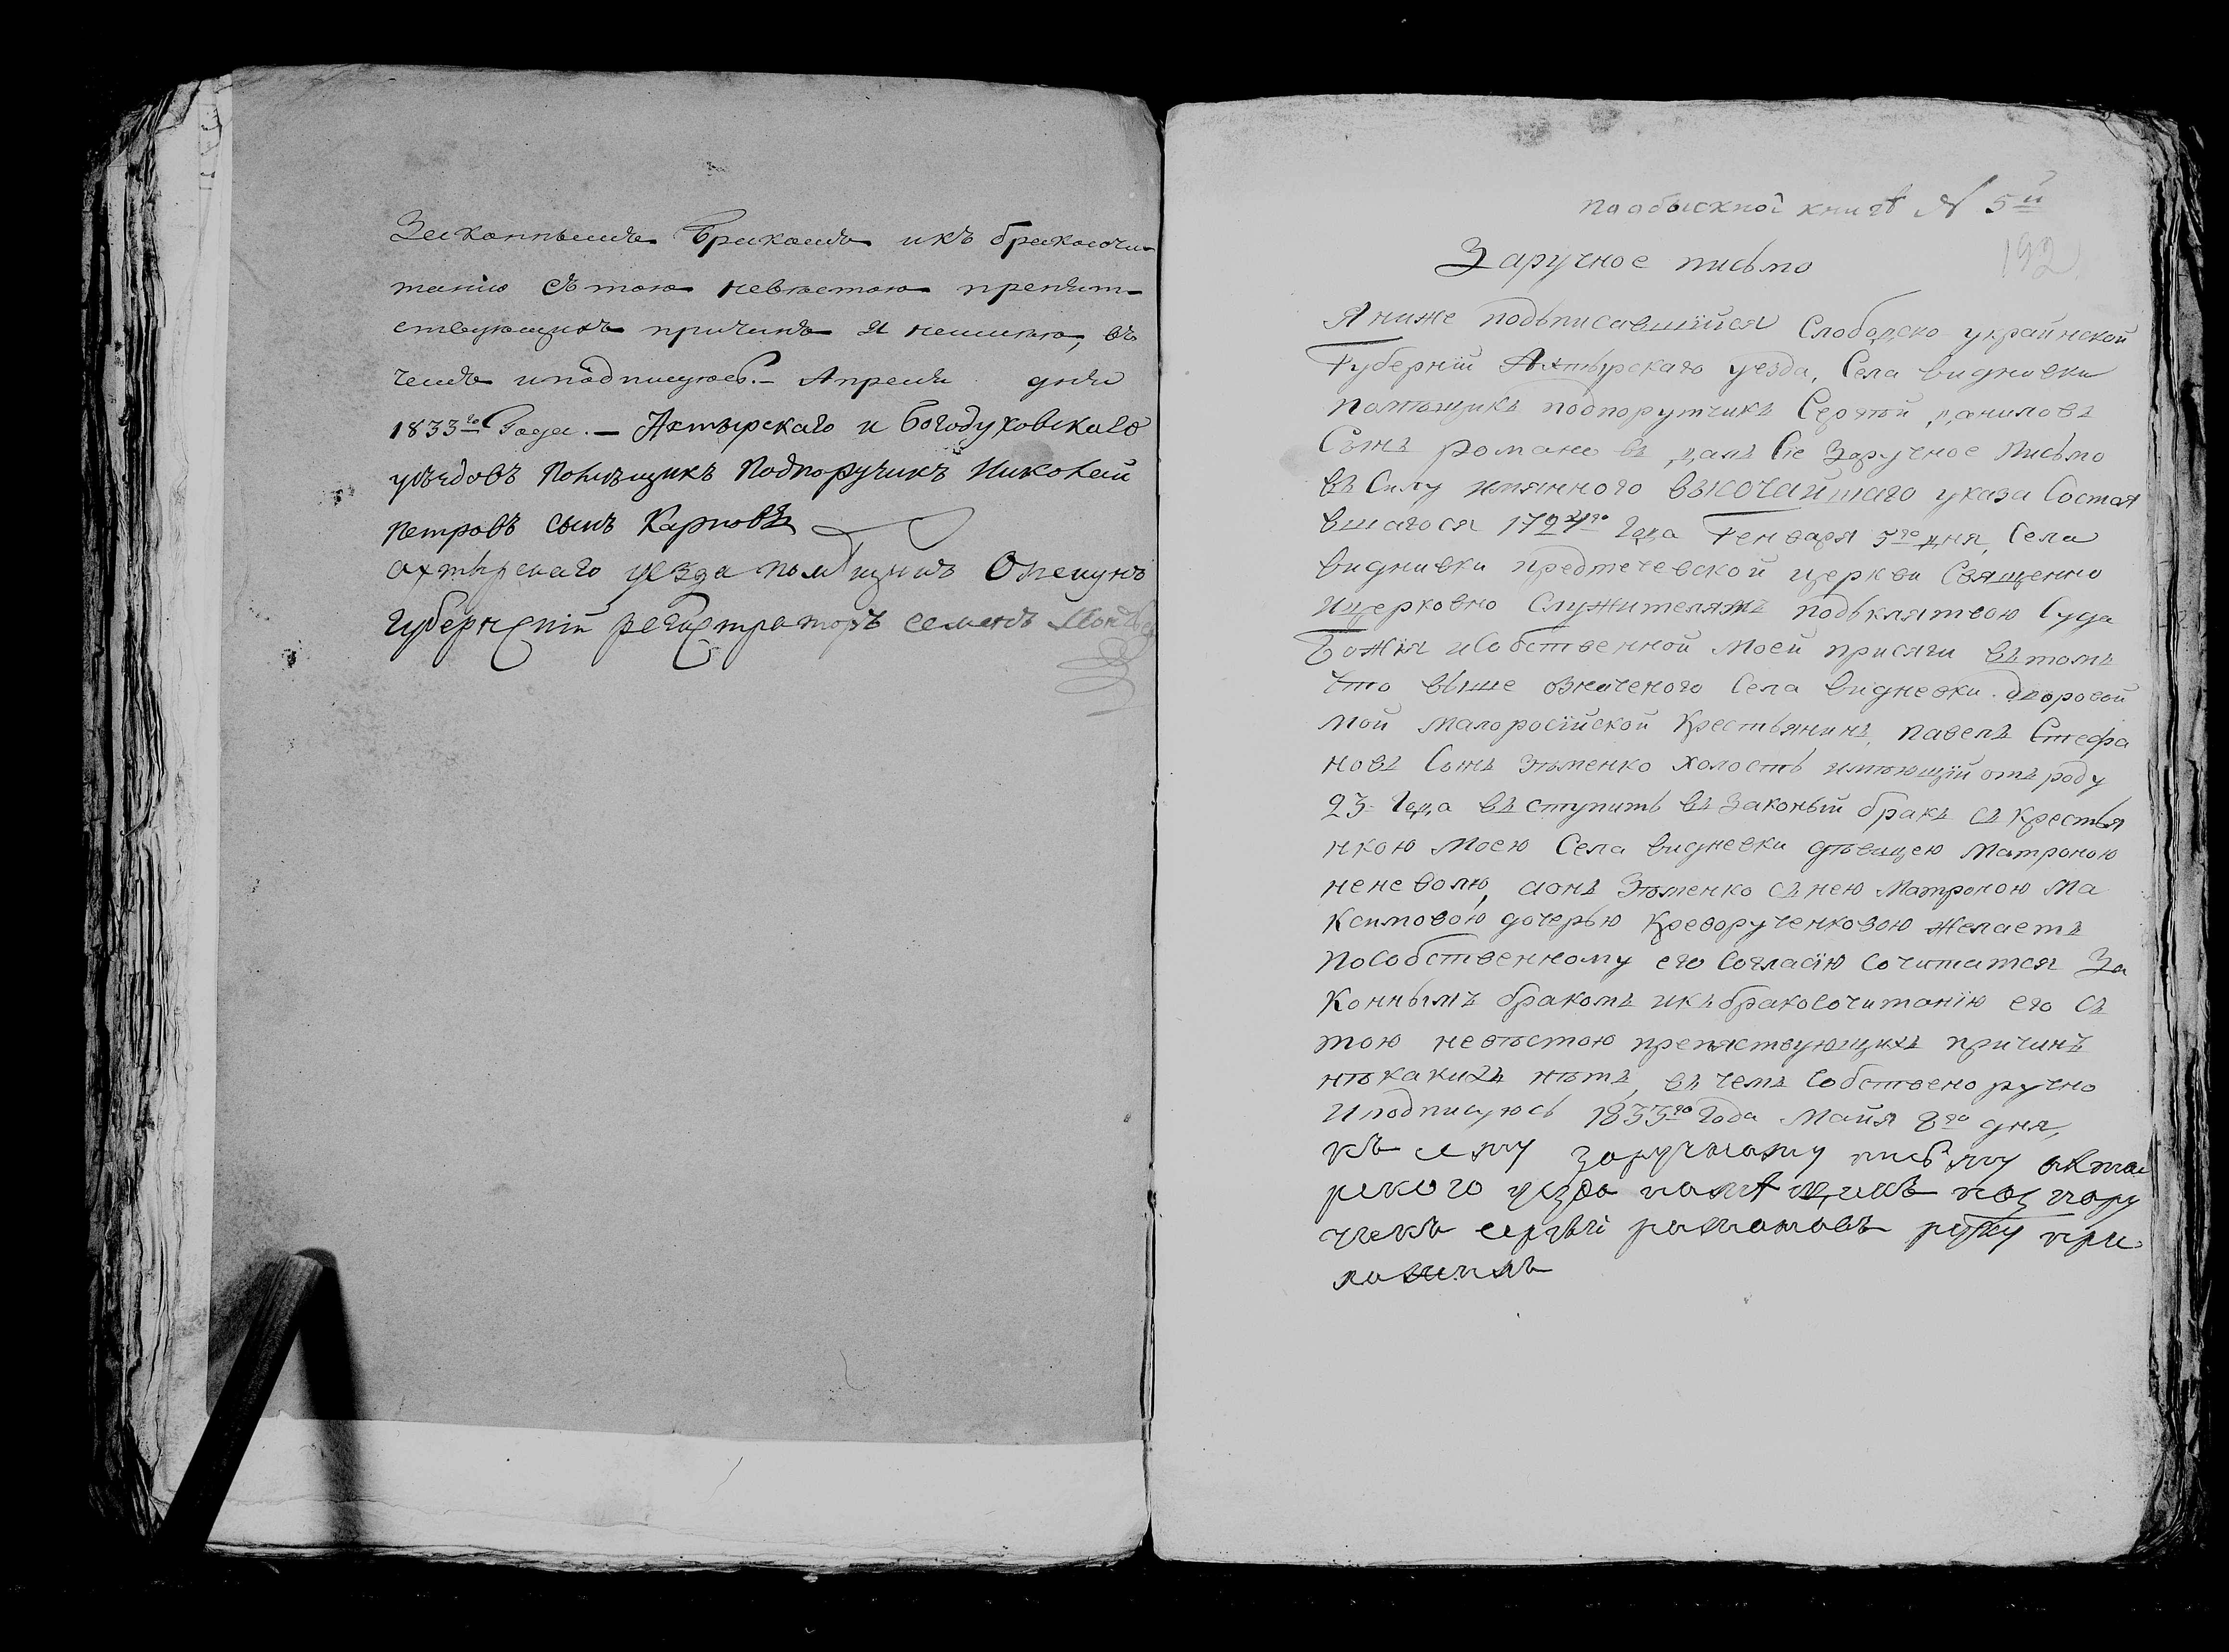 Законнымъ бракомъ икъ бракосочи-
танію стою невестою препят-
ствующихъ причинъ я неимею, въ
чемъ иподписуюсь. – Апреля дня
1833го Года. – Ахтырскаго и Богодуховскаго
уѣздовъ Помѣщикъ Подпоручикъ Николай
Петровъ сынъ Карповъ
ахтырскаго уезда помѣщикъ Опекунъ
губернскій регистраторъ семенъ
пообыскной книгѣ № 5й
192
Заручное письмо
Я ниже подъписавшійся Слободско украинской
Губерніи Ахтырскаго уезда, Села видновки
Помѣщикъ подпорутчикъ Сергѣй даниловъ
Сынъ романовъ далъ Сіе Заручное Письмо
въ Силу имянного высочайшаго указа Состоя
вшагося 1724го Года Генваря 5го дня, Села
видновки предтечевской церкви Священно
ицерковно Служителямъ подъклятвою Суда
Божія иСобственной Моей присяги въ томъ
что выше озночеого Села видневки дворовой
мой малоросійской Крестьянинъ, павелъ Стефа
новъ Сынъ Зѣменко холостъ имѣющій отъ роду
23 Года въступить въ Законый бракъ съ крестья
нкою моею Села видневки дѣвицею Матроною
неневолю, аонъ Зѣменко съ нею Матроною Ма
Ксимовою дочерью Креворученковою желаетъ
пособственному его Согласію Сочитатся За
Коннымъ бракомъ икъбракосочитанію его съ
тою невѣстою препяствующихъ причинъ
нѣкакихъ нѣтъ, въ чемъ Собственоручно
Иподписуюсь 1833го Года Майя 8го дня,
къ сему заручному письму ахты
рского уезда помѣщикъ подпору
чикъ сергѣй романовъ руку при
ложилъ